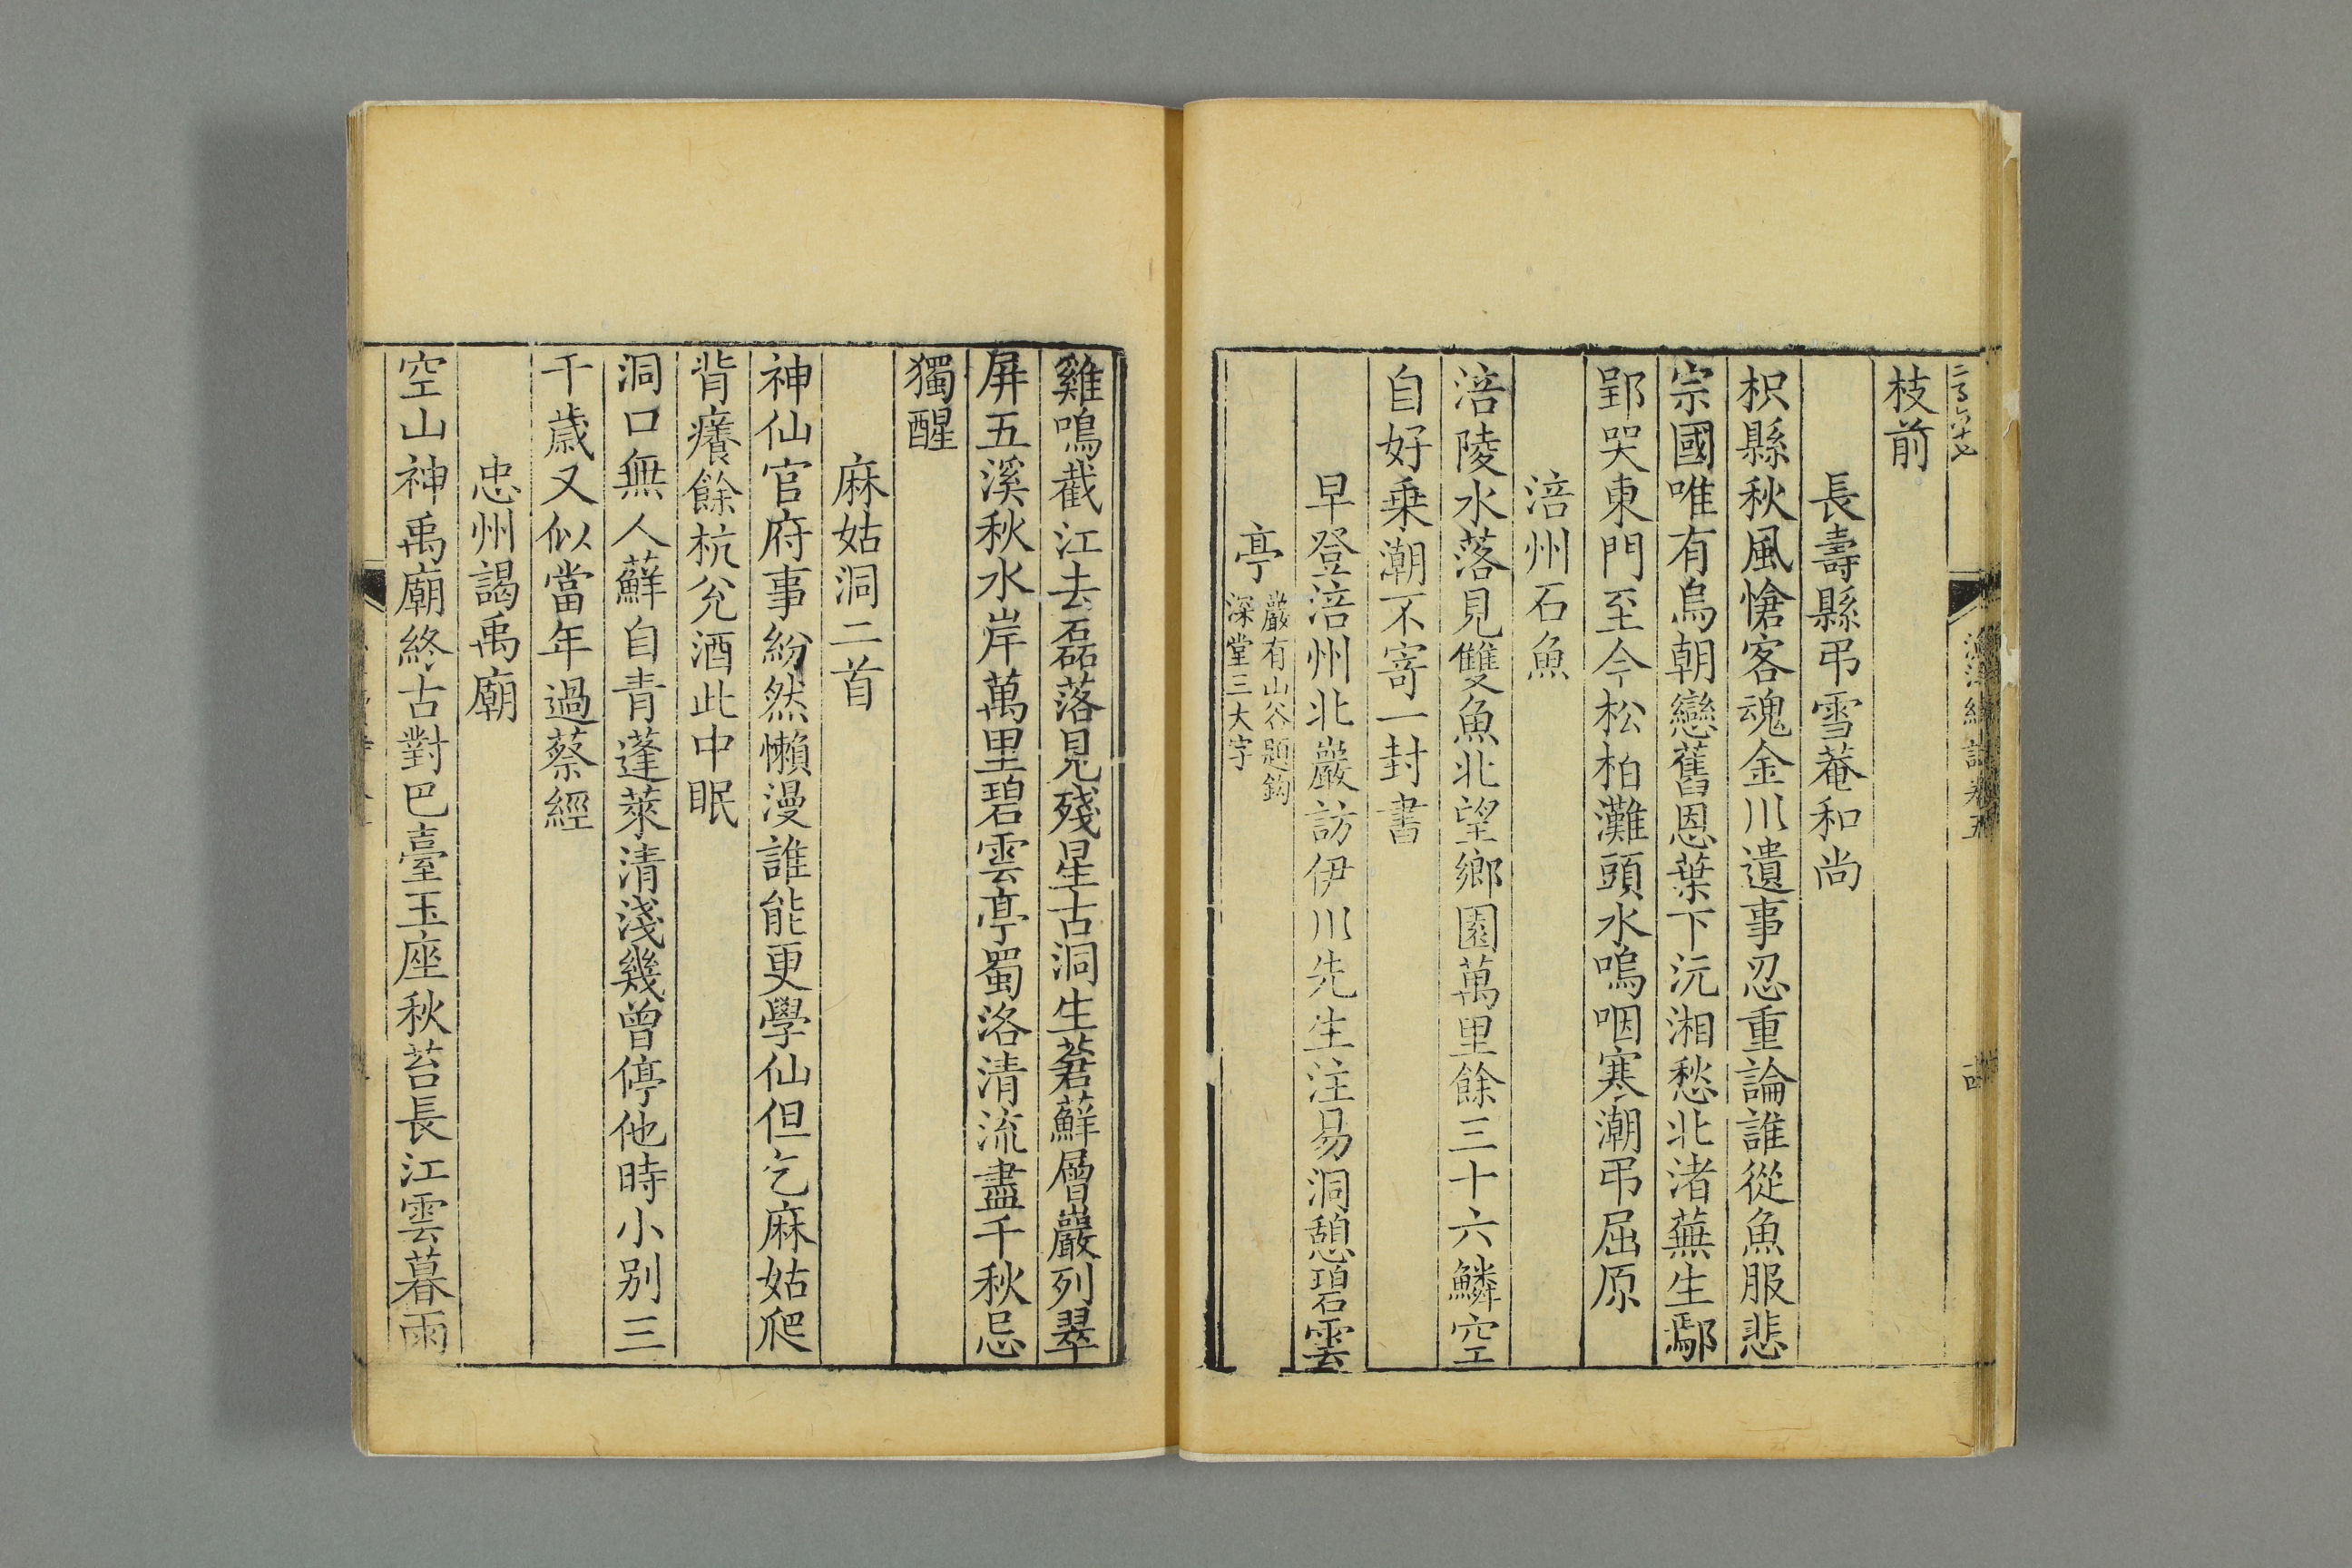 枝前
長壽縣弔雪菴和尚
枳縣秋風愴客魂金川遺事忍重論誰從魚服悲
宗國唯有烏朝戀舊恩葉下沅湘愁北渚蕪生鄢
郢哭東門至今松柏灘頭水嗚咽寒潮弔屈原
涪州石魚
涪陵水落見雙魚北望鄉園萬里餘三十六鱗空
自好乗潮不寄一封書
早登涪州北巖訪伊川先生注易洞憩碧雲
亭
巖有山谷題鈎
深堂三大字
雞鳴截江去磊落見殘星古洞生蒼蘚層巖列翠
屏五溪秋水岸萬里碧雲亭蜀洛清流盡千秋忌
獨醒
麻姑洞二首
神仙官府事紛然懶漫誰能更學仙但乞麻姑爬
背癢餘杭兊酒此中眠
洞口無人蘚自青蓬萊清淺幾曾停他時小别三
千歳又似當年過蔡經
忠州謁禹廟
空山神禹廟終古對巴臺玉座秋苔長江雲暮雨